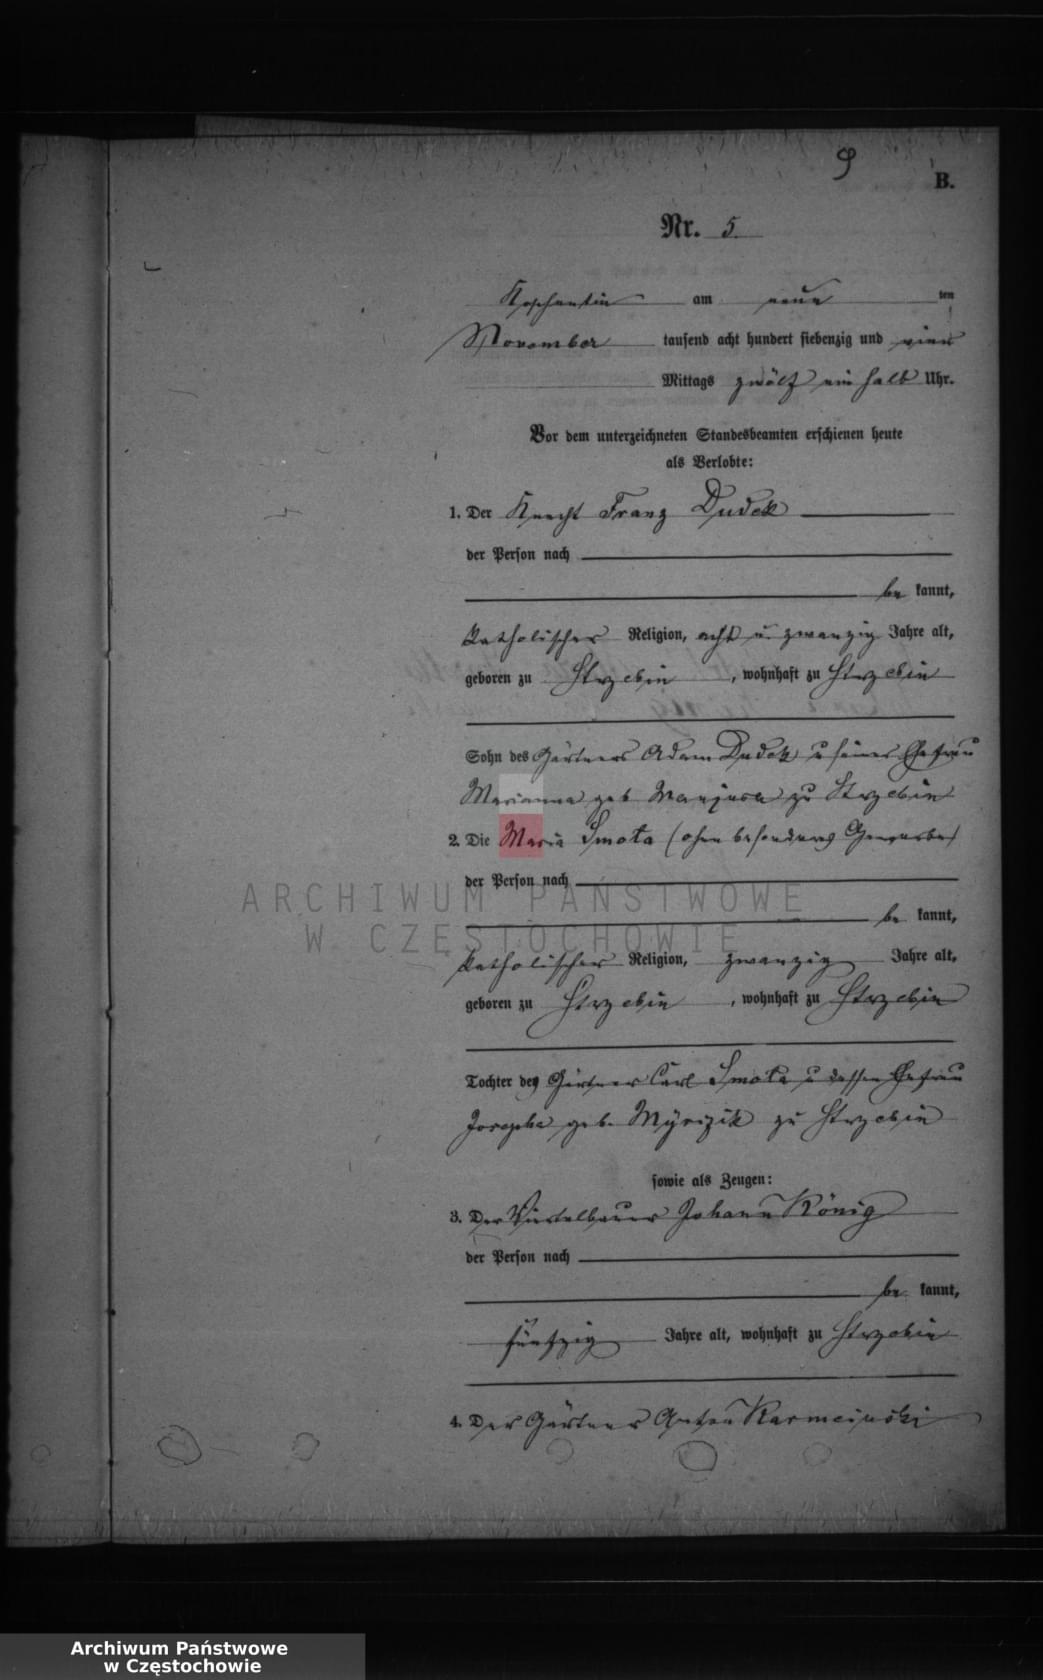 9
B.
Nr. 5.
Koschentin am neun ten
November tausend acht hundert siebenzig und vier
Mittags zwölf ein halb Uhr.
Vor dem unterzeichneten Standesbeamten erschienen heute
als Verlobte:
1. Der Knecht Franz Dudek
der Person nach
be kannt,
katholischer Religion, acht u. zwanzig Jahre alt,
geboren zu Strzebin, wohnhaft zu Strzebin
Sohn des Gärtners Adam Dudek u seiner Ehefrau
Marianna geb zu Strzebin
2. Die Maria Smota (ohne besonderes Gewerbe)
der Person nach
be kannt,
katholischer Religion, zwanzig Jahre alt,
geboren zu Strzebin, wohnhaft zu Strzebin
Tochter des Gärtner Carl Smota u dessen Ehefrau
Josepha geb. Myrizik zu Strzebin
sowie als Zeugen:
3. Der Viertelbauer Johann König
der Person nach
be kannt,
fünfzig Jahre alt, wohnhaft zu Strzebin
4. Der Gärtner Anton Karmeinski
ARCHIWUM PAŃSTWOWE
W CZĘSTOCHOWIE
Archiwum Państwowe
w Częstochowie